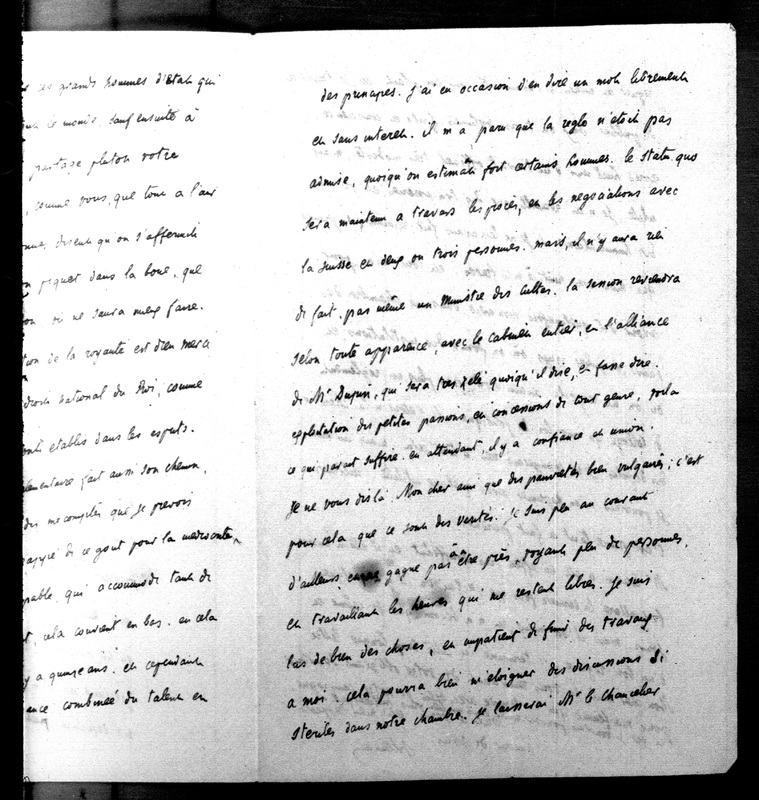 ces grands hommes d'état qui
le monis, sauf ensuite à
partage plutot votre
, comme vous, que tout a l'air
disent qu'on s'affermit
piquer dans la boue, que
on ne saura mieux faire.
tion de la royauté est bien merca
droit national du Roi, comme
sont etablis dans les esprits.
lementaire fait aussi son chemin,
des mecomptes que je prevois
rappé de ce gout pour la mediocrité,
pable, qui accommode tant de
t, cela convient en bas. en cela
y a quinze ans. et cependant
ance combinée du talent en
des principes. j'ai eu occasion d'en dire un mot librement
et sans interet. il m'a paru que la regle n'etoit pas
admise, quoiqu'on estimât fort certains hommes. le statu quo
sera maintenu a travers les pisces, et les negociations avec
la suisse et deux ou trois personnes. mais, il n'y aura rien
de fait. pas même un Ministre des Cultes. la session reviendra
selon toute apparence, avec le cabinet entier, et l'alliance
de Mr Dupin, qui sera tres zelé quoiqu'il dise, et fasse dire.
exploitation des petites passions, et concessions de tout genre, voila
ce qui parait suffire. en attendant, il y a confiance et union.
Je ne vous dis là Mon cher ami que des pauvretés bien vulgaires; c'est
pour cela que ce sont des verités. je suis peu au courant
d'ailleurs gagne pas à être près, voyant peu de personnes,
et travaillant les heures qui me restent libres. Je suis
las de bien des choses, et impatient de finir des travaux
a moi. cela pourra bien m'eloigner des discussions si
steriles dans notre chambre. je laisserai Mr le Chancelier